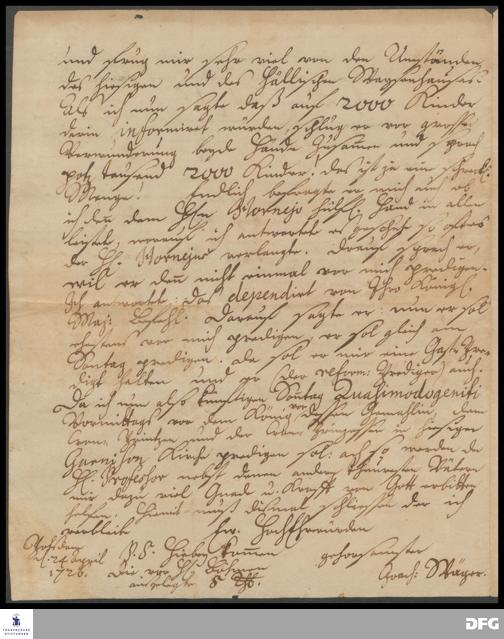 und frug mir sehr viel von den Umständen
des hiesigen und des Hällischen Waysenhauses.
Als ich nun sagte daß auf 2000 Kinder
darin informiret würden, schlug er vor grosser
Verwunderung beyde Hände zusammen und sprach
potz tausend 2000 Kinder, das ist ja eine schreckl.
Menge! Endlich befragte er mich auch ob
ich den dem Hhn hülfl. Hand in allen
leistete, worauf ich antwortete es geschehe so offt es
der H. verlangte. Drauf sprach er,
wil er den nicht einmal vor mich predigen.
Ich antwortete: das dependirt von Ihro Königl.
Maj: Befehl. Darauf sagte er: nun er sol
ehestens vor mich predigen, er sol gleich am
Sontag predigen. da sol er mir eine Gast-Pre-
digt halten und so der reform: Prediger auch.
Da ich nun also künftigen Sontag Quasimodogeniti
Vormittags vor dem König vor dessen Gemahlin, dem
Cron-Printzen und der Printzessin in hiesiger
Garnison Kirche predigen sol: ach so werden der
H. Professor nebst denen andern theuresten Vätern
mir dazu viel Gnad u. Krafft von Gott erbitten
helfen. Hiemit muß dismal schliessen der ich
verbleibe Ew. HochEhrwürden
Potsdam
d. 24 April
1726.
P. S. Hiebey kommen
die vor H.
ausgelegte 8 Thl.
gehorsamster
Joach: Wäger.
FRANCKESCHE
STIFTUNGEN
DFG